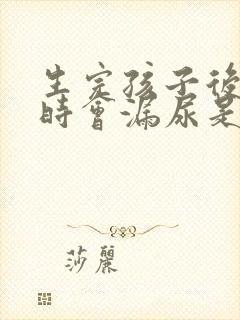 生完孩子後
時會漏尿是
莎麗